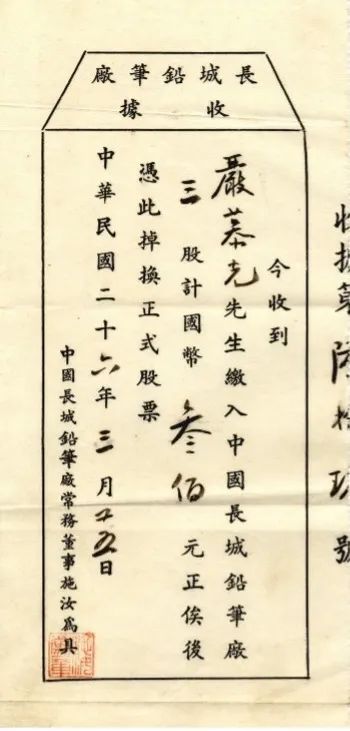 收據第陸拾號
長城鉛筆廠
收據
今收到
嚴慕克先生繳入中國長城鉛筆廠
三股計國幣叁佰元正俟後
憑此掉換正式股票
中華民國二十六年三月五日
中國長城鉛筆廠常務董事施汝爲具